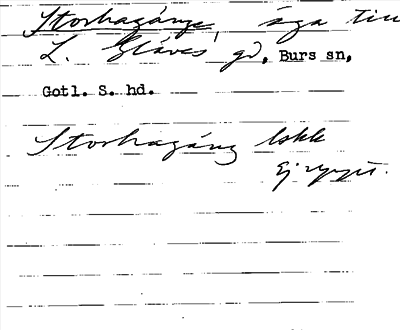 Storhagänge, äga till
L. Gläves gd, Burs sn,
Gotl. S. hd.
Storhagäng lskk
Ej upyst.